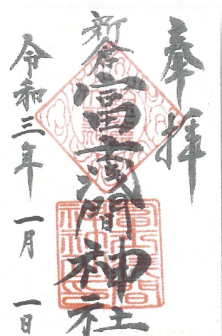 奉拝
新倉
富士浅間神社
令和三年一月一日